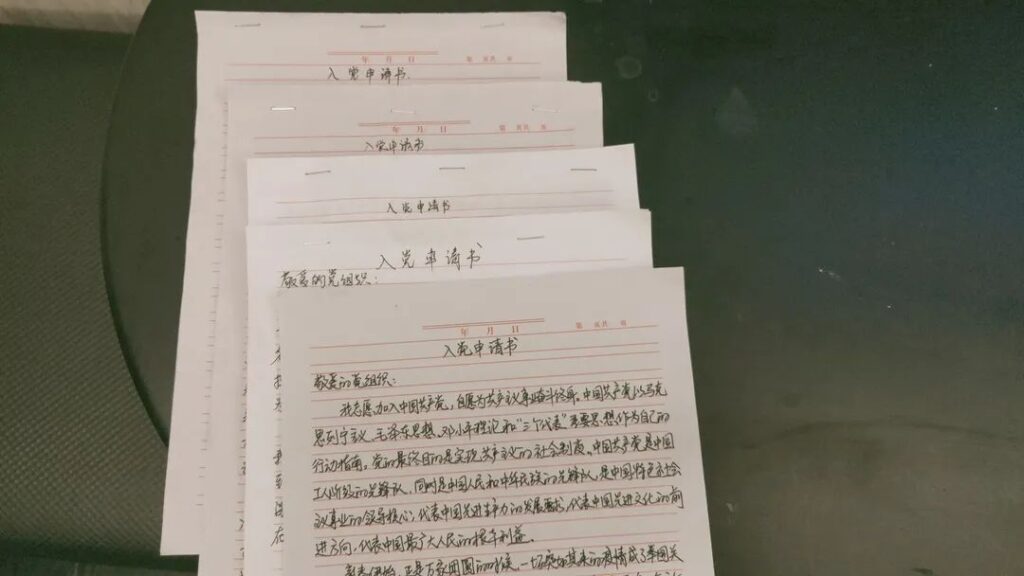 年 月 日 第 页共 页
入党申请书
年 月 日 第 页共 页
入党申请书
入党申请书
入党申请书
敬爱的党组织:
年 月 日 第 页共 页
入党申请书
敬爱的党组织:
我志愿加入中国共产党,自愿为共产主义事业奋斗终身。中国共产党以马克
思列宁主义、毛泽东思想、邓小平理论和“三个代表”重要思想作为自己的
行动指南。党的最终目的是实现共产主义的社会制度。中国共产党是中国
工人阶级的先锋队,同时是中国人民和中华民族的先锋队,是中国特色社会
主义事业的领导核心,代表中国先进生产力的发展要求,代表中国先进文化的前
进方向,代表中国最广大人民的根本利益。
正是万家团圆的时候,一场突如其来的疫情